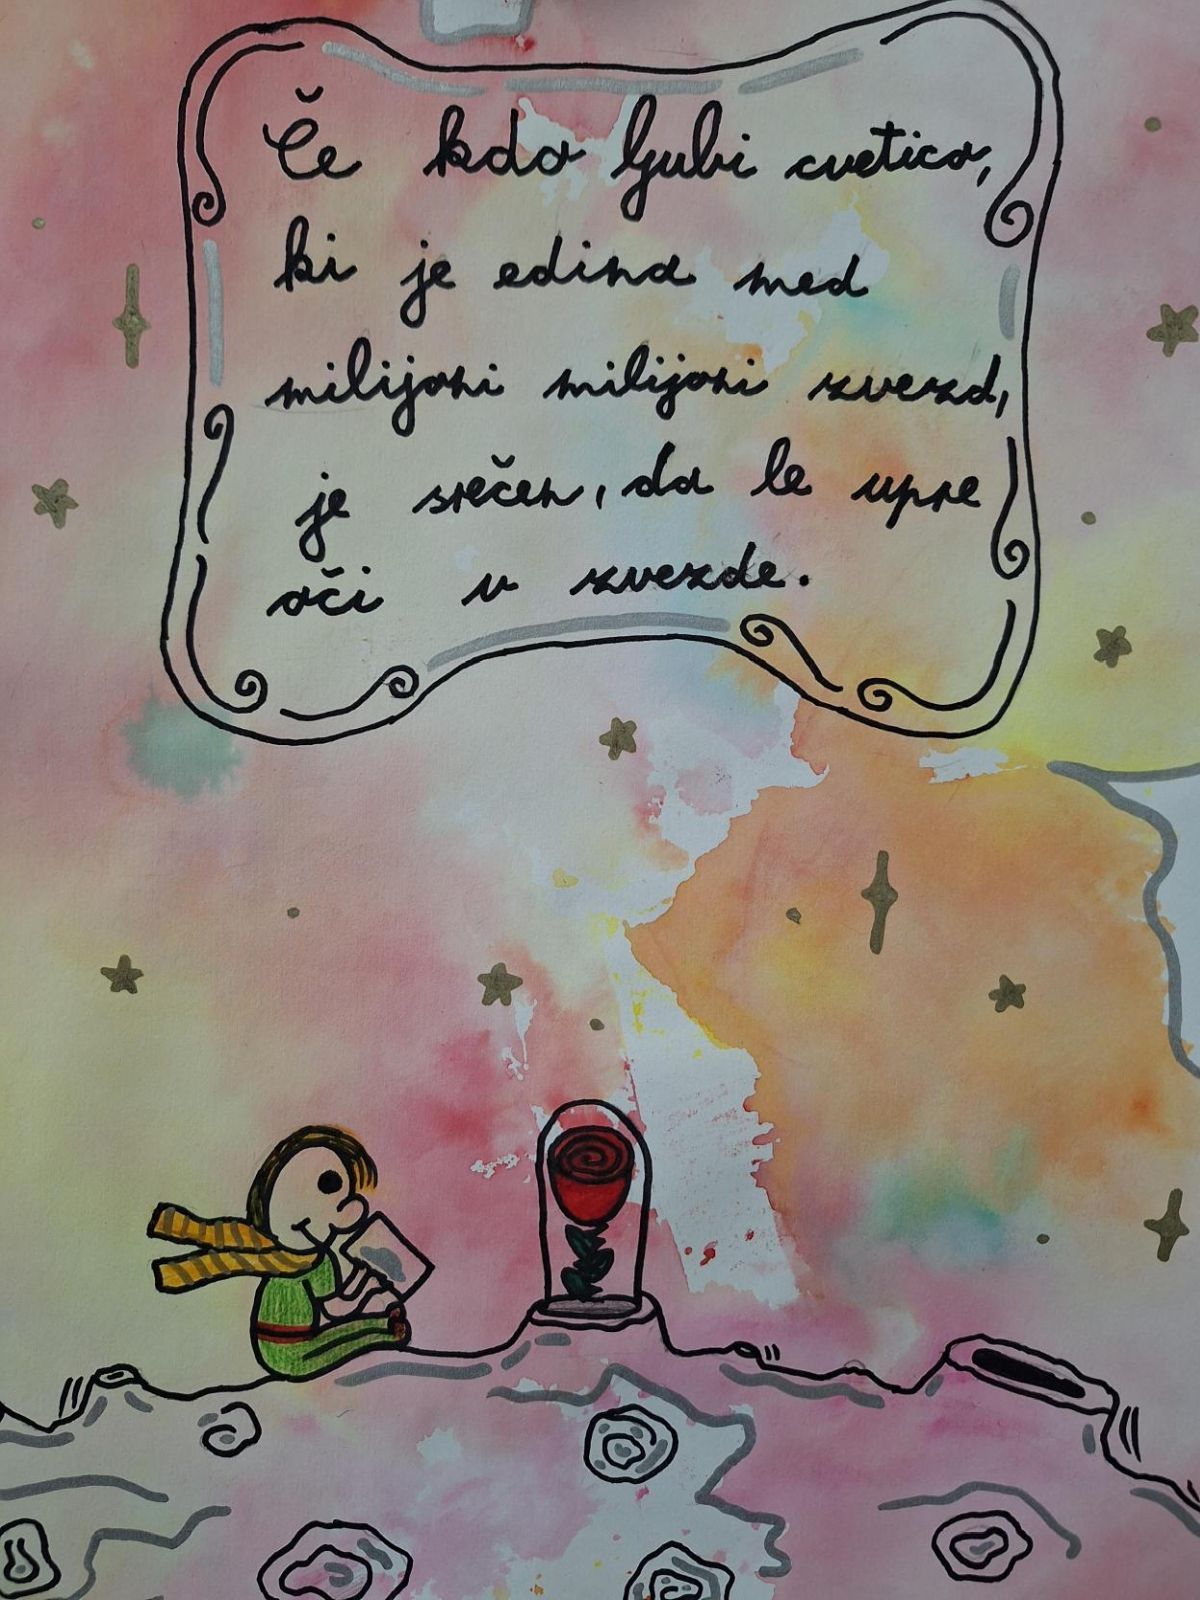 Če kdo ljubi cvetico,
ki je edina med
milijoni milijoni zvezd,
je srečen, da le upre
oči v zvezde.